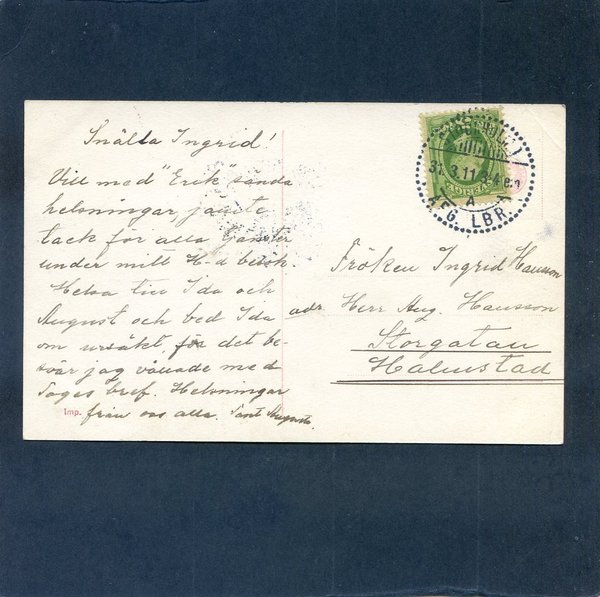 Snälla Ingrid!
Vill med "Erik" sända
helsningar jämte
tack för alla tjänster
under mitt H-d besök.
Helsa till Ida och
August och bed Ida
om ursäkt för det be-
svär jag vållade med
Tages bref. Helsningar
från oss alla. Tant Augusta.
Imp.
31.3.11
A
LBR
Fröken Ingrid Hansson
adr. Herr Aug. Hansson
Storgatan
Halmstad